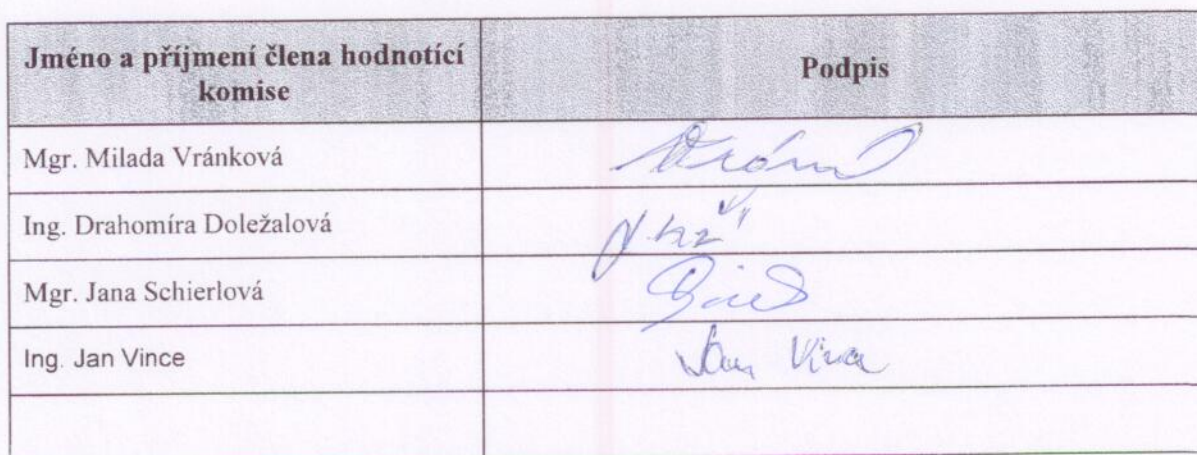 Jméno a příjmení člena hodnotící
komise
Podpis
Mgr. Milada Vránková
Ing. Drahomíra Doležalová
Mgr. Jana Schierlová
Ing. Jan Vince
Jan Vince